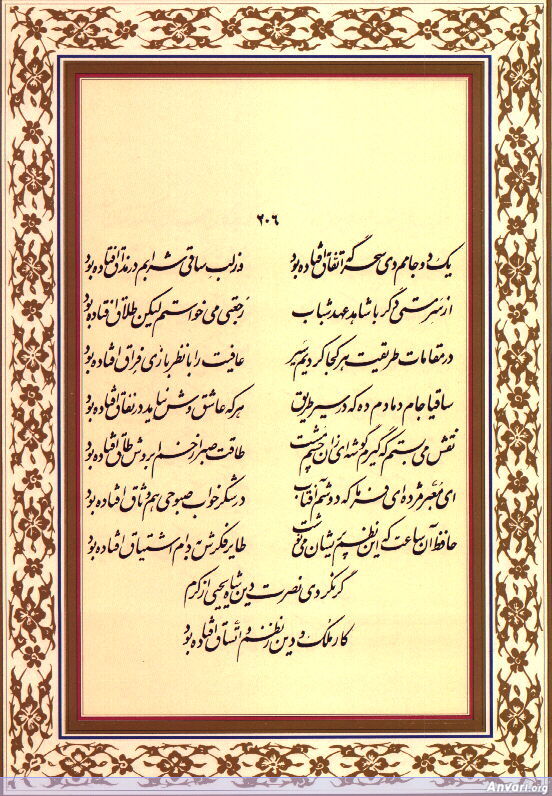 ۲۰۶
یک دو جامم دی سحرگه اتفاق افتاده بود وز لب ساقی شرابم در مذاق افتاده بود
از سر مستی دگر با شاهد عهد شباب رجعتی می خواستم لیکن طلاق افتاده بود
در مقامات طریقت هر کجا کردیم سیر عافیت را با نظر بازی فراق افتاده بود
ساقیا جام دمادم ده که در سیر طریق هر که عاشق وش نیامد در نفاق افتاده بود
نقش می بستم که گیرم گوشه ای زان چشم مست طاقت صبر از خم ابروش طاق افتاده بود
ای معبر مژده ای فرما که دوشم آفتاب در شکر خواب صبوحی هم وثاق افتاده بود
حافظ آن ساعت که این نظم پریشان می نوشت طایر فکرش به دام اشتیاق افتاده بود
گر نکردی نصرت دین شاه یحیی از کرم
کار ملک و دین ز نظم و اتساق افتاده بود
Anvari.org